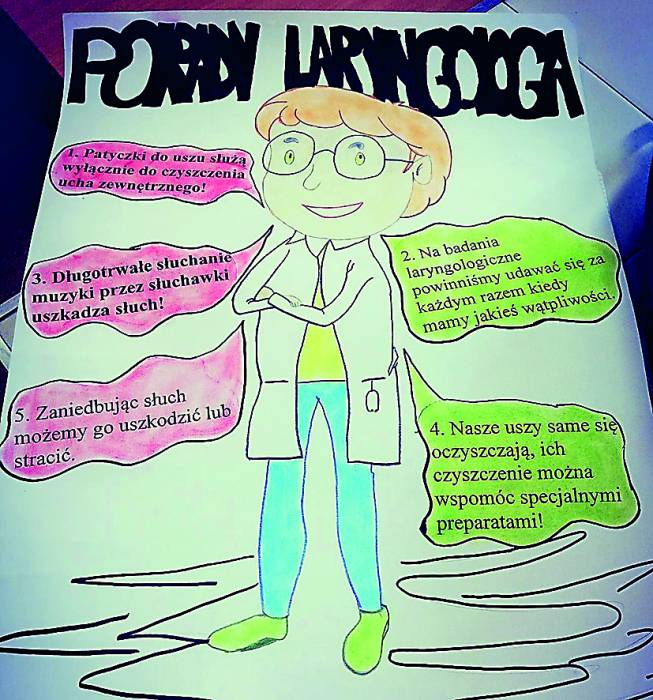 PORADY LARYNGOLOGA
1. Patyczki do uszu służą
wyłącznie do czyszczenia
ucha zewnętrznego!
2. Na badania
laryngologiczne
powinniśmy udawać się za
każdym razem kiedy
mamy jakieś wątpliwości.
3. Długotrwałe słuchanie
muzyki przez słuchawki
uszkadza słuch!
4. Nasze uszy same się
oczyszczają, ich
czyszczenie można
wspomóc specjalnymi
preparatami!
5. Zaniedbując słuch
możemy go uszkodzić lub
stracić.